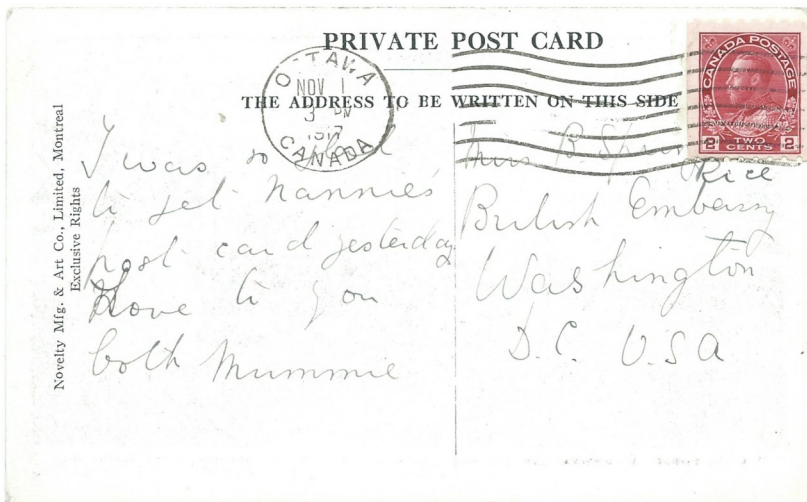 PRIVATE POST CARD
THE ADDRESS TO BE WRITTEN ON THIS SIDE
OTTAWA
NOV 1
3 PM
1917
CANADA
CANADA POSTAGE
2 TWO CENTS 2
Novelty Mfg. & Art Co., Limited, Montreal
Exclusive Rights
I was so glad
to get Nannie's
post card yesterday
Love to you
both Mummie
Miss B. Spring
Rice
British Embassy
Washington
D.C. U.S.A